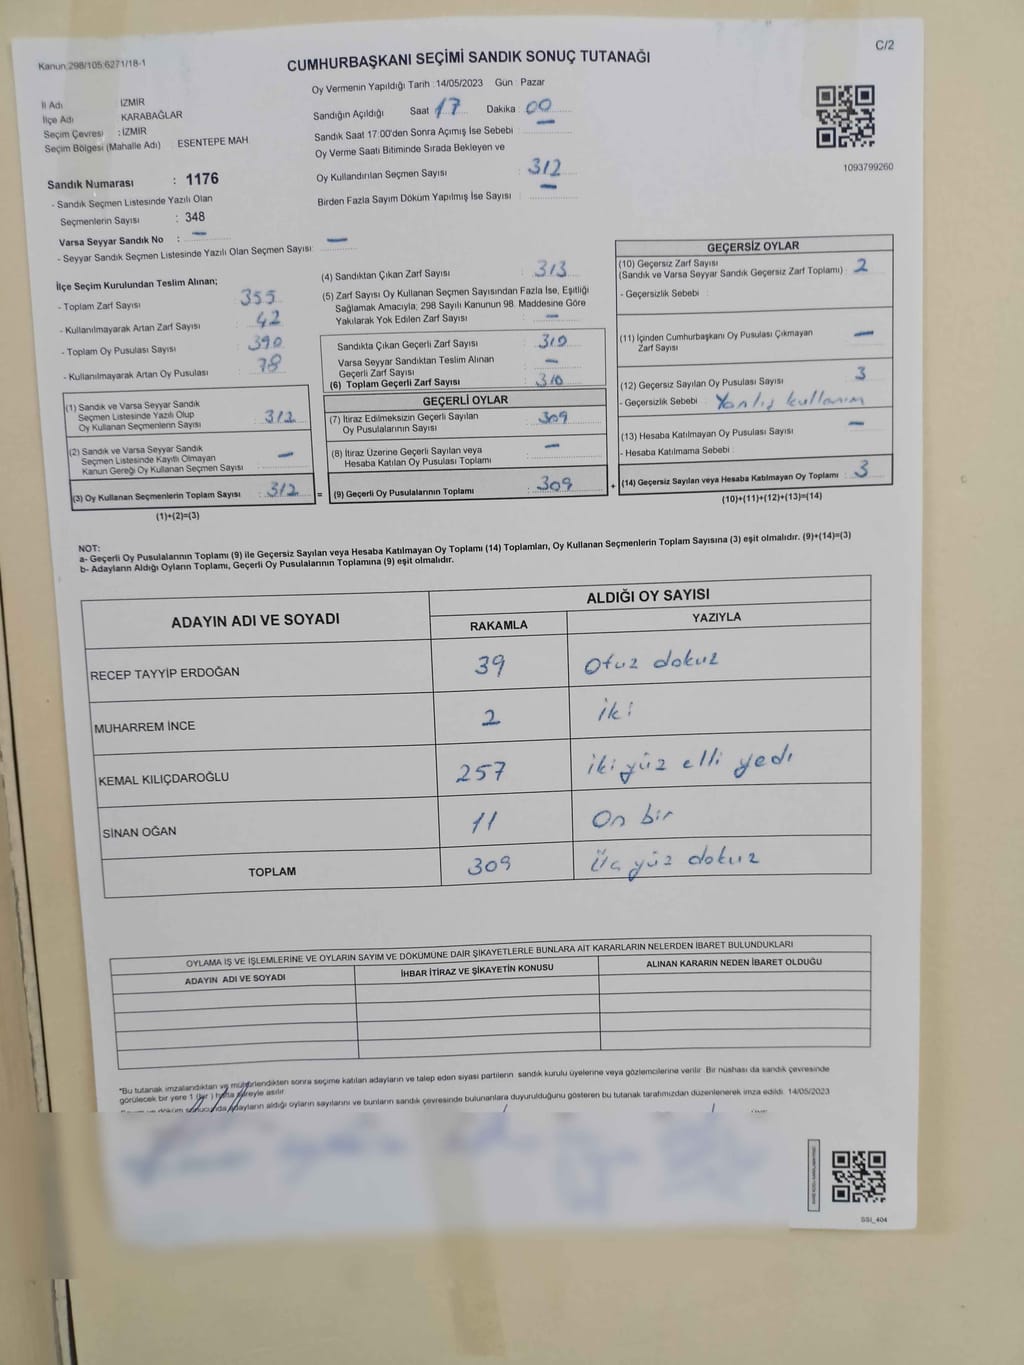 C/2
Kanun 298/105 6271/18-1
CUMHURBAŞKANI SEÇİMİ SANDIK SONUÇ TUTANAĞI
Oy Vermenin Yapıldığı Tarih : 14/05/2023 Gün : Pazar
İl Adı : İZMİR
İlçe Adı : KARABAĞLAR
Seçim Çevresi : İZMİR
Seçim Bölgesi (Mahalle Adı) ESENTEPE MAH
Sandık Numarası : 1176
- Sandık Seçmen Listesinde Yazılı Olan
Seçmenlerin Sayısı : 348
Varsa Seyyar Sandık No : —
- Seyyar Sandık Seçmen Listesinde Yazılı Olan Seçmen Sayısı: —
Sandığın Açıldığı Saat 17 Dakika 00
Sandık Saat 17:00'den Sonra Açımış İse Sebebi : —
Oy Verme Saati Bitiminde Sırada Bekleyen ve
Oy Kullandırılan Seçmen Sayısı : 312
Birden Fazla Sayım Döküm Yapılmış İse Sayısı : —
1093799260
İlçe Seçim Kurulundan Teslim Alınan;
- Toplam Zarf Sayısı : 355
- Kullanılmayarak Artan Zarf Sayısı : 42
- Toplam Oy Pusulası Sayısı : 390
- Kullanılmayarak Artan Oy Pusulası : 78
(1) Sandık ve Varsa Seyyar Sandık
Seçmen Listesinde Yazılı Olup
Oy Kullanan Seçmenlerin Sayısı : 312
(2) Sandık ve Varsa Seyyar Sandık
Seçmen Listesinde Kayıtlı Olmayan
Kanun Gereği Oy Kullanan Seçmen Sayısı : —
(3) Oy Kullanan Seçmenlerin Toplam Sayısı : 312 =
(1)+(2)=(3)
(4) Sandıktan Çıkan Zarf Sayısı : 313
(5) Zarf Sayısı Oy Kullanan Seçmen Sayısından Fazla İse, Eşitliği
Sağlamak Amacıyla; 298 Sayılı Kanunun 98. Maddesine Göre
Yakılarak Yok Edilen Zarf Sayısı : —
Sandıkta Çıkan Geçerli Zarf Sayısı : 310
Varsa Seyyar Sandıktan Teslim Alınan
Geçerli Zarf Sayısı : —
(6) Toplam Geçerli Zarf Sayısı : 310
GEÇERLİ OYLAR
(7) İtiraz Edilmeksizin Geçerli Sayılan
Oy Pusulalarının Sayısı : 309
(8) İtiraz Üzerine Geçerli Sayılan veya
Hesaba Katılan Oy Pusulası Toplamı : —
(9) Geçerli Oy Pusulalarının Toplamı : 309 +
GEÇERSİZ OYLAR
(10) Geçersiz Zarf Sayısı : 2
(Sandık ve Varsa Seyyar Sandık Geçersiz Zarf Toplamı)
- Geçersizlik Sebebi :
(11) İçinden Cumhurbaşkanı Oy Pusulası Çıkmayan
Zarf Sayısı : —
(12) Geçersiz Sayılan Oy Pusulası Sayısı : 3
- Geçersizlik Sebebi : Yanlış kullanım
(13) Hesaba Katılmayan Oy Pusulası Sayısı : —
- Hesaba Katılmama Sebebi :
(14) Geçersiz Sayılan veya Hesaba Katılmayan Oy Toplamı : 3
(10)+(11)+(12)+(13)=(14)
NOT:
a- Geçerli Oy Pusulalarının Toplamı (9) ile Geçersiz Sayılan veya Hesaba Katılmayan Oy Toplamı (14) Toplamları, Oy Kullanan Seçmenlerin Toplam Sayısına (3) eşit olmalıdır. (9)+(14)=(3)
b- Adayların Aldığı Oyların Toplamı, Geçerli Oy Pusulalarının Toplamına (9) eşit olmalıdır.
ADAYIN ADI VE SOYADI ALDIĞI OY SAYISI
RAKAMLA YAZIYLA
RECEP TAYYİP ERDOĞAN 39 Otuz dokuz
MUHARREM İNCE 2 iki
KEMAL KILIÇDAROĞLU 257 iki yüz elli yedi
SİNAN OĞAN 11 On bir
TOPLAM 309 Üç yüz dokuz
OYLAMA İŞ VE İŞLEMLERİNE VE OYLARIN SAYIM VE DÖKÜMÜNE DAİR ŞİKAYETLERLE BUNLARA AİT KARARLARIN NELERDEN İBARET BULUNDUKLARI
ADAYIN ADI VE SOYADI İHBAR İTİRAZ VE ŞİKAYETİN KONUSU ALINAN KARARIN NEDEN İBARET OLDUĞU
*Bu tutanak imzalandıktan ve mühürlendikten sonra seçime katılan adayların ve talep eden siyasi partilerin sandık kurulu üyelerine veya gözlemcilerine verilir. Bir nüshası da sandık çevresinde
görülecek bir yere 1 (bir) hafta süreyle asılır.
Sayım ve döküm sonucunda adayların aldığı oyların sayılarını ve bunların sandık çevresinde bulunanlara duyurulduğunu gösteren bu tutanak tarafımızdan düzenlenerek imza edildi. 14/05/2023
SSI_404